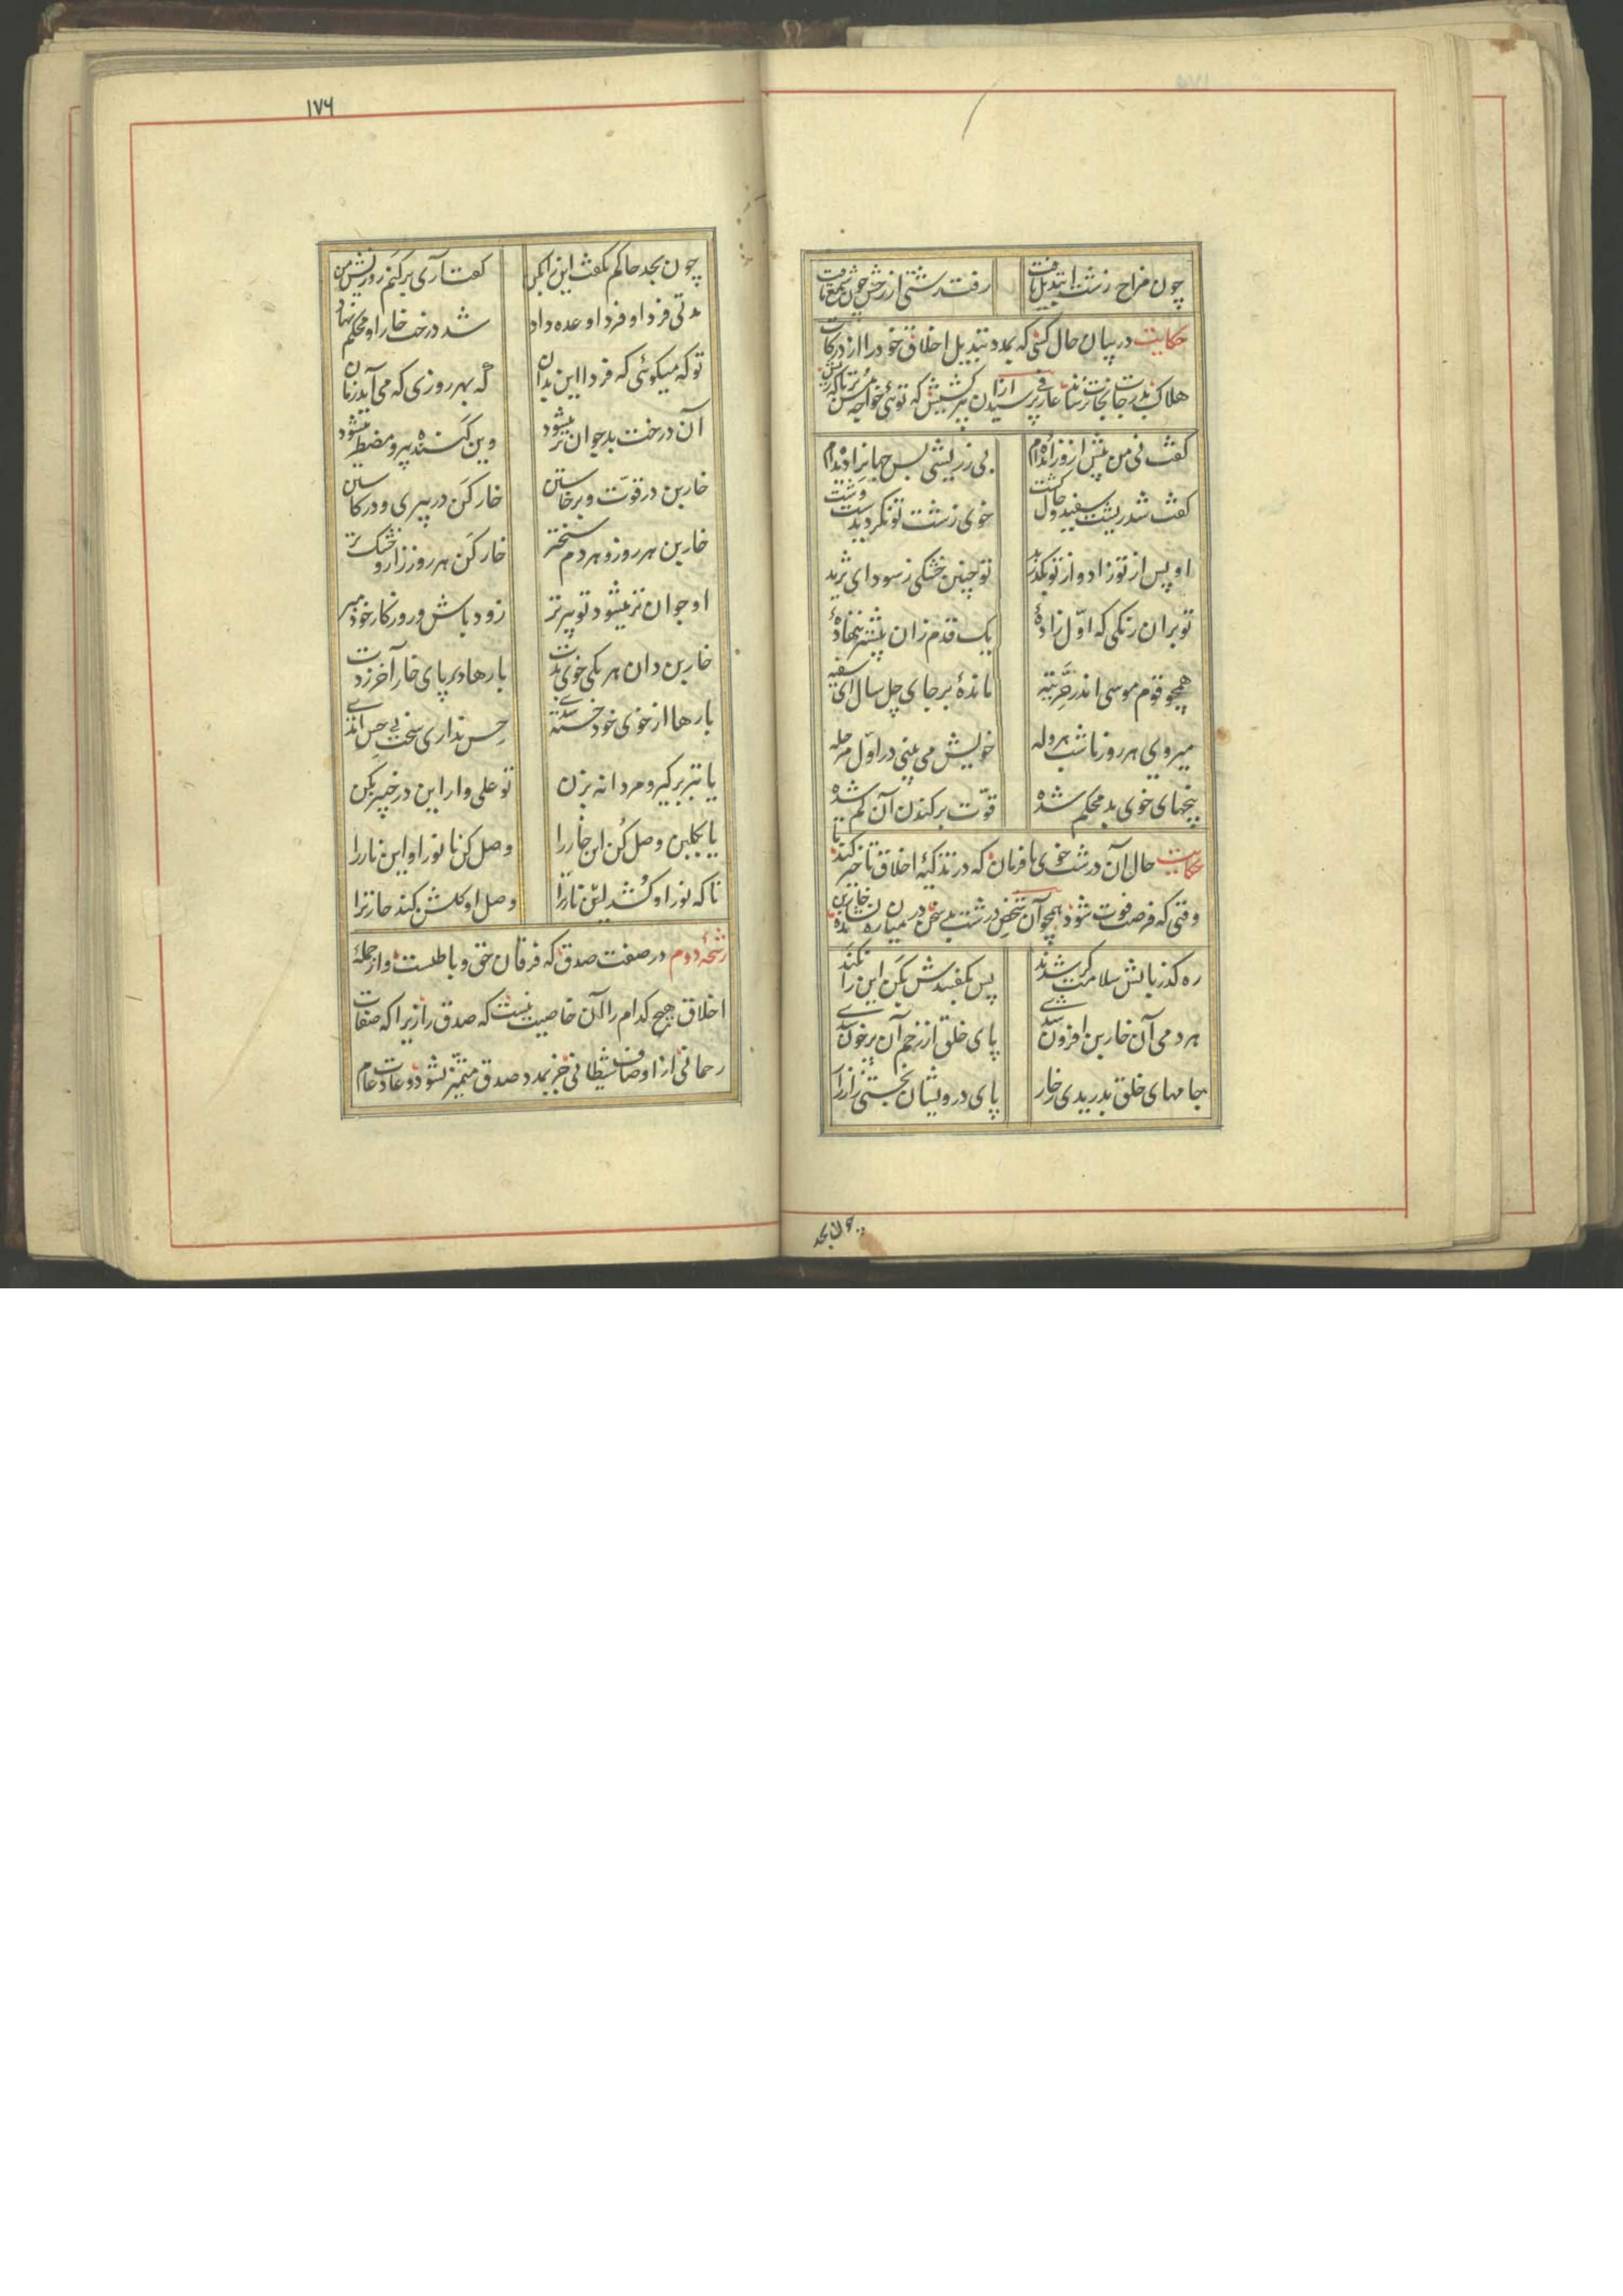 چون مزاج زشت او تبدیل یافت رفت زشتی از رخش چون شمع تافت
حکایت در بیان حال کسی که بمدد تبدیل اخلاق خود را از درکات
هلاک بدرجات نجات نرساند عارفی پرسید از آن پیر کشیش که توئی خواجه مسن تر یا که ریش
گفت نی من پیش ازو زائیده‌ام بی ز ریشی بس جهان را دیده‌ام
گفت شد ریشت سفید و حال گشت خوی زشت تو نگردیدست وشت
او پس از تو زاد و از تو بگذرید تو چنین خشکی ز سودای ثرید
تو بران رنگی که اول زادهٔ یک قدم زان پیشتر ننهادهٔ
همچو قوم موسی اندر حر تیه ماندهٔ بر جای چل سال ای سفیه
میروی هر روز تا شب هروله خویش می بینی در اول مرحله
بیخهای خوی بد محکم شده قوت برکندن آن کم شده
حکایت حال آن درشت خوی نافرمان که در تزکیهٔ اخلاق تاخیر کند تا
وقتی که فرصت فوت شود همچو آن شخص درشت بد سخن در میان ره نشانده خاربن
ره گذریانش سلامت گر شدند پس بگفتندش بکن این را نکند
هر دمی آن خاربن افزون شدی پای خلق از زخم آن پر خون شدی
جامهای خلق بدریدی ز خار پای درویشان بخستی زار زار
چون بجد
۱۷۶
چون بجد حاکم بگفت این را بکن گفت آری برکنم روزیش من
مدتی فردا و فردا وعده داد شد درخت خار او محکم نهاد
تو که میگوئی که فردا این بدان که بهر روزی که می آید زمان
آن درخت بد جوان تر میشود وین کننده پیر و مضطر میشود
خاربن در قوت و برخاستن خار کن در پیری و در کاستن
خاربن هر روز و هر دم سختتر خار کن هر روز زار و خشک تر
او جوان تر میشود تو پیرتر زود باش و روزگار خود مبر
خاربن دان هر یکی خوی بدت بارها در پای خار آخر زدت
بارها از خوی خود خسته شدی حس نداری سخت بی حس آمدی
یا تبر برگیر و مردانه بزن تو علی وار این در خیبر بکن
یا بگلبن وصل کن این خار را وصل کن با نور او این نار را
تا که نور او کشد این نار را وصل او گلشن کند خار ترا
رشحهٔ دوم در صفت صدق که فرقان حق و باطلست و از جملهٔ
اخلاق هیچ کدام را آن خاصیت نیست که صدق را زیرا که صفات
رحمانی از اوصاف شیطانی جز بمدد صدق متمیز نشود و عادت عام